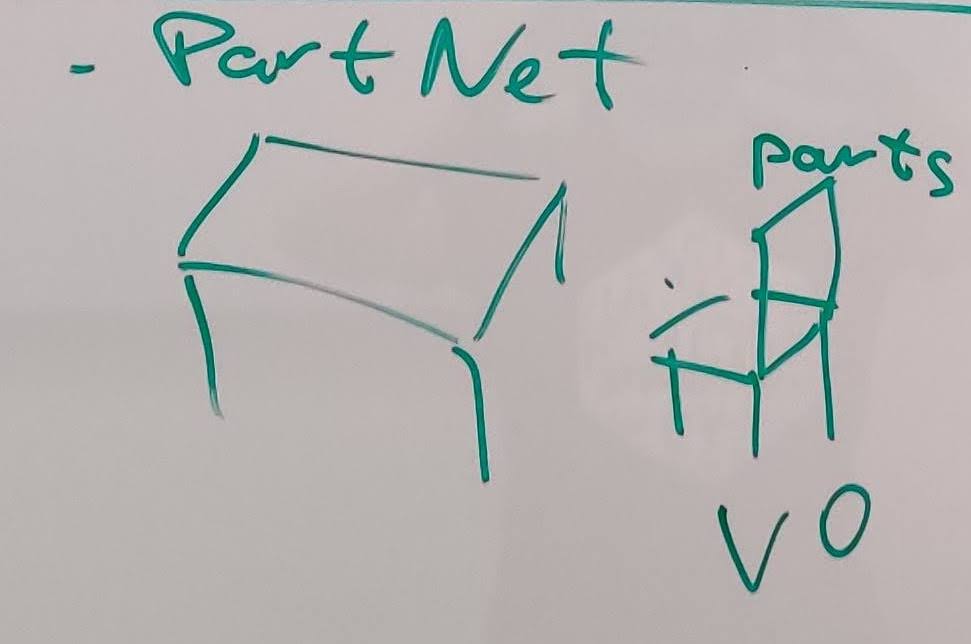 - PartNet
parts
VO